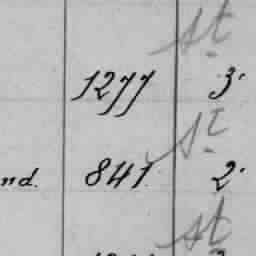 st
1277 3.
st
nd. 841. 2.
st